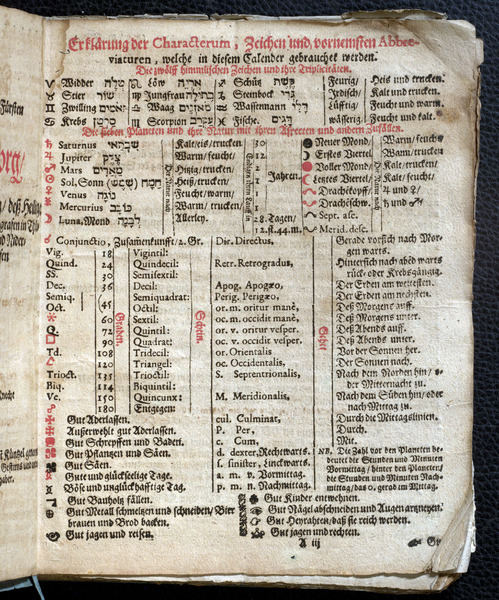 Erklärung der Characterum, Zeichen und vornemsten Abbre-
viaturen, welche in diesem Calender gebrauchet werden.
Die zwölff himmlischen Zeichen und ihre Triplicitäten.
♈ Widder טלה ♌ Löw אריה ♐ Schütz קשת Feurig/ Heis und trucken.
♉ Stier שור ♍ Jungfrau בתולה ♑ Irdisch/ Kalt und trucken.
♊ Zwilling תאומים ♎ Waag מאזנים ♒ Wassermann דלי Lüfftig/ Feucht und warm.
♋ Krebs סרטן ♏ Scorpion עקרב ♓ Fische. דגים wässerig/ Feucht und kalt.
Die sieben Planeten und ihre Natur mit ihren Aspecten und andern Zufällen.
♄ Saturnus שבתאי Kalt/ trucken 30 Neuer Mond/ Warm/feucht
♃ Jupiter צדק Warm/feucht/ 12 Erstes Viertel Warm/trucken
♂ Mars מאדים Hitzig/trucken/ 2 Voller Mond/ Kalt/trucken/
☉ Sol, Sonn (שמש) חמה Heiß/trucken/ 1 Jahren. Letztes Viertel Kalt/feucht/
♀ Venus נוגה Feucht/warm/ 1 Drachkopff/ ♃ und ♀/
☿ Mercurius כוכב Feucht/warm/ 1 Drachschw. ♄ und ♂/
☽ Luna, Mond לבנה Allerley. 28. Tagen/ Sept. asc.
12. st. 44. m. Merid. desc.
☌ Conjunctio, Zusamenkunfft/ 2. Gr. Dir. Directus, Gerade vorsich nach Mor-
gen warts.
Vig. 18 Vigintil:
Quind. 24 Quindecil: Retr. Retrogradus, Hintersich nach abēd warts
SS. 30 Semisextil: rück- oder Krebsgängig.
Dec. 36 Decil: Apog. Apogæo, Der Erden am weitesten.
Semiq. 45 Semiquadrat: Perig. Perigæo, Der Erden am nechsten.
Oct. Octil: or. m. oritur manè, Deß Morgens auff.
60 Sextil: oc. m. occidit manè, Deß Morgens unter.
Q. 72 Graden. Quintil: Schein. or. v. oritur vesper. Seyt Deß Abends auff.
□ 90 Quadrat: oc. v. occidit vesper. Deß Abends unter.
Td. 108 Tridecil: or. Orientalis Vor der Sonnen her.
△ 120 Triangel: oc. Occidentalis, Der Sonnen nach.
Trioct. 135 Trioctil: S. Septentrionalis, Nach dem Norden hin/ o-
der Mitternacht zu.
Biq. 144 Biquintil:
Ve. 150 Quincunx: M. Meridionalis, Nach dem Süden hin/ oder
☍ 180 Entgegen: nach Mittag zu.
Gut Aderlassen. cul. Culminat, Durch die Mittagslinien.
Außerwehlt gut Aderlassen. P. Per, Durch.
Gut Schrepffen und Baden. c. Cum, Mit.
Gut Pflantzen und Säen. d. dexter, Rechtswarts. NB. Die Zahl vor den Planeten be-
Gut Säen. s. sinister, Linckwarts. deutet die Stunden und Minuten
Gute und glückseelige Tage. a. m. v. Vormittag. Vormittag/ hinter den Planeten/
Böse und unglückhafftige Tag. p. m. n. Nachmittag. die Stunden und Minuten Nach-
mittag/ das 0. gerad im Mittag.
Gut Bauholtz fällen. Gut Kinder entwehnen.
Gut Metall schmeltzen und schneiden/ Bier Gut Nägel abschneiden und Augen artzneyen.
brauen und Brod backen. Gut Heyrahten/ daß sie reich werden.
Gut jagen und reisen. Gut jagen und rechten.
A iij